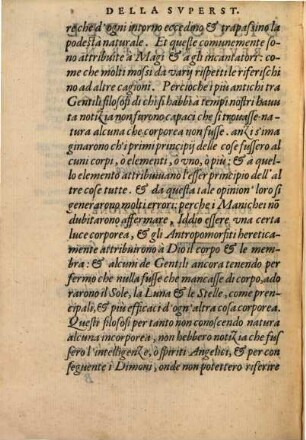 DELLA SVPERST.
reche d'ogni intorno eccedino & trapassino la
podestà naturale. Et queste comunemente so
no attribuite a Magi & agli incantatori: co
me che molti mossi da varij rispetti le riferischi
no ad altre cagioni. Percioche i più antichi tra
Gentili filosofi di chi si habbi a tempi nostri hauu
ta notizia non furono capaci che si trouasse na-
tura alcuna che corporea non fusse. anzi s'ima
ginarono ch'i primi principij delle cose fussero al
cuni corpi, o elementi, ò vno, ò più; & a quel
lo elemento attribuiuano l'esser principio dell'al
tre cose tutte. & da questa tale opinion' loro si
generarono molti errori: perche i Manichei nō
dubitarono affermare, Iddio essere vna certa
luce corporea, & gli Antropomorfiti heretica-
mente attribuirono à Dio il corpo & le mem-
bra: & alcuni de Gentili ancora tenendo per
fermo che nulla fusse che mancasse di corpo, ado
rarono il Sole, la Luna & le Stelle, come prin-
cipali, & più efficaci d'ogn'altra cosa corporea.
Questi filosofi per tanto non conoscendo natura
alcuna incorporea, non hebbero notizia che fus
sero l'intelligenze, ò spiriti Angelici, & per con
seguente i Dimoni, onde non potettero riferire